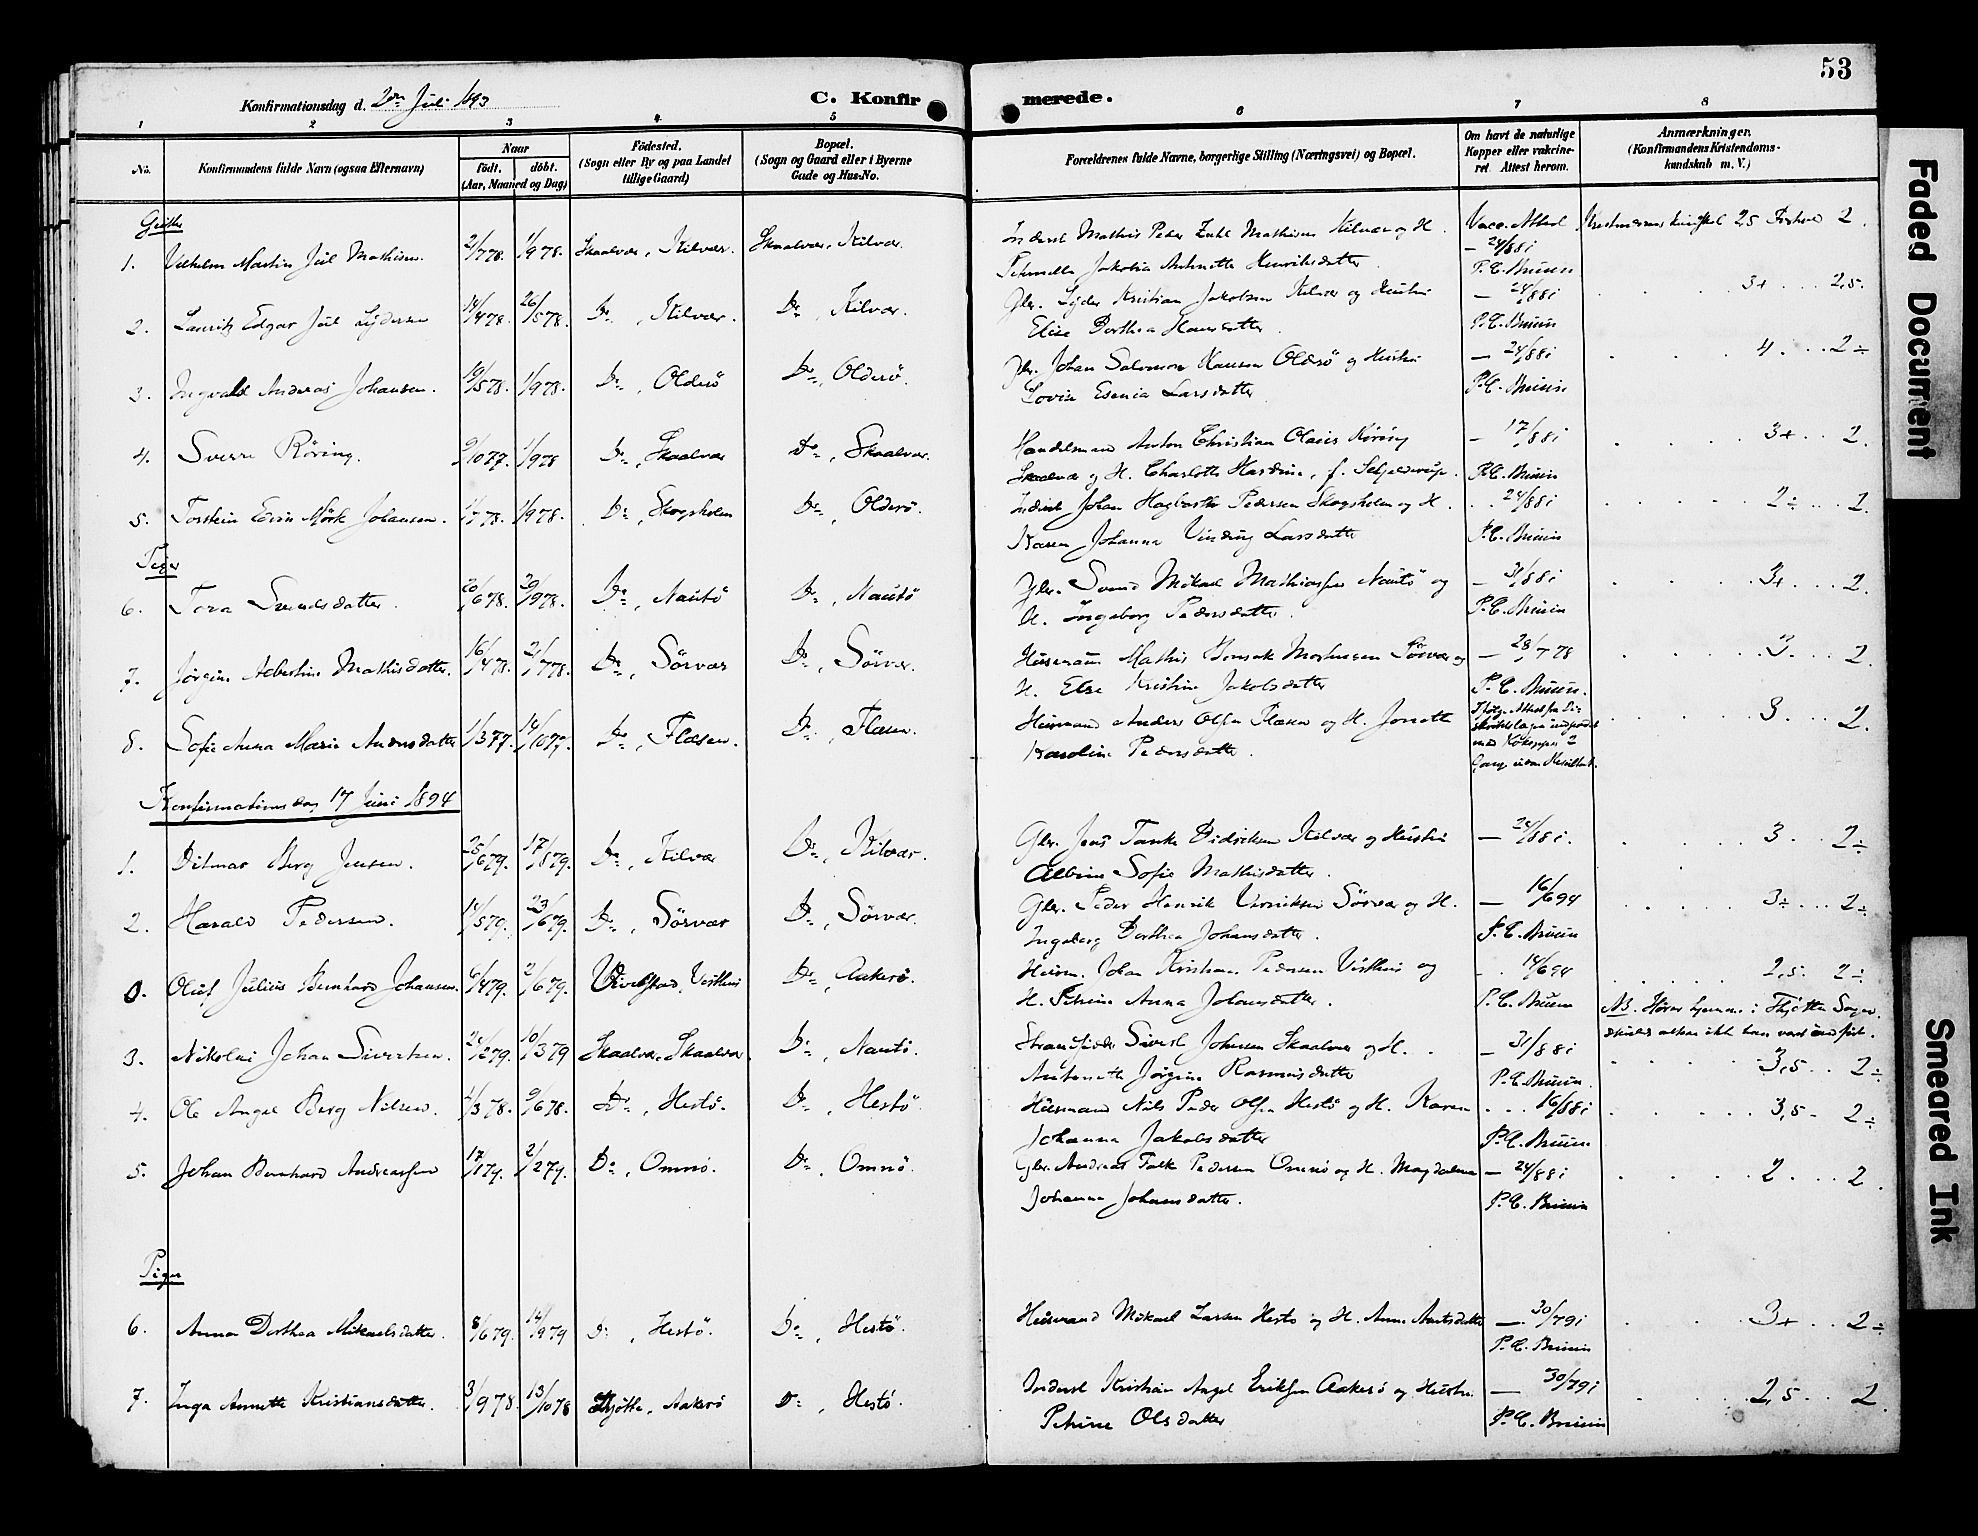 53
Konfirmationsdag d. 2den Juli 1893
C. Konfirmerede.
1 2 3 4 5 6 7 8
No.
Konfirmandens fulde Navn (ogsaa Efternavn)
Naar
födt. döbt.
(Aar, Maaned og Dag)
Födested.
(Sogn eller By og paa Landet
tillige Gaard)
Bopæl.
(Sogn og Gaard eller i Byerne
Gade og Hus-No.
Forældrenes fulde Navne, borgerlige Stilling (Næringsvei) og Bopæl.
Om havt de naturlige
Kopper eller vakcine-
ret Attest herom.
Anmærkninger.
(Konfirmandens Kristendoms-
kundskab m. V.)
Gutter
1. Vilhelm Martin Jul Mathisen. 2/7 78. 1/9 78. Skaalvær, Kilvær. Skaalvær, Kilvær. Inderst Mathis Peder Mathisen Kilvær og H. Vacc. Attest 2,5 2.
Jakobia Antonette Henriksdatter – 24/8 81 P. C. Bruun
2. Lauritz Edgar Juul Lydersen 14/4 78. 26/5 78. Do, Kilvær. Do, Kilvær. Gbr. Lyder Kristian Jakobsen Kilvær og Hustru – 24/8 81 3+ 2,5.
Elise Dorthea Hansdatter. P. C. Bruun
3. Ingvald Andreas Johansen. 19/5 78. 1/9 78. Do, Olderö Do, Olderö. Gbr. Johan Salomon Hansen Olderö og Hustru – 24/8 81 4 2÷
Lovise Esenia Larsdatter P. C. Bruun
4. Sverre Röring. 9/10 77. 1/9 78 Do, Skaalvær Do, Skaalvær. Handelsmand Anton Christian Olaus Röring – 17/8 81 3+ 2.
Skaalvær og H. Charlotte Hardine, f. Schjelderup. P. C. Bruun
5. Torstein Edvin Mörk Johansen. 1/7 78. 1/9 78. Do, Skogsholm Do, Olderö. Inderst Johan Hagbarth Pedersen Skogsholm og H. 24/8 81 2÷ 2.
Karen Johanna Vinding Larsdatter P. C. Bruun
Piger
6. Tora Svendsdatter. 20/6 78. 29/9 78. Do, Nautö Do, Nautö Gbr. Svend Mikael Mathiassen Nautö og – 31/8 81 3+ 2.
H. Ingeborg Pedersdatter. P. C. Bruun
7. Jörgine Albertine Mathisdatter. 16/4 78. 21/7 78. Do, Sörvær Do, Sörvær. Husmand Mathis Benonk Mortensen Sörvær og – 28/7 78 3. 2.
H. Else Kristine Jakobsdatter P. C. Bruun.
8. Sofie Anna Marie Andersdatter 1/3 77. 14/10 77. Do, Flæsen. Do, Flæsen. Husmand Anders Olsen Flæsen og H. Jonette Ifölge Attest fra Di- 3 2.
Karoline Pedersdatter. striktslægen indpodet
med Kokopper 2
Gange uden Resultat.
Konfirmationsdag 17 Juni 1894
1. Ditmar Berg Jensen. 25/6 79. 17/8 79. Do, Kilvær Do, Kilvær. Gbr. Jens Tanke Didriksen Kilvær og Hustru – 24/8 81. 3 2÷
Albine Sofie Mathisdatter.
2. Harald Pedersen. 14/5 79. 23/6 79. Do, Sörvær Do, Sörvær. Gbr. Peder Henrik Sörvær og H. – 16/6 94 3÷ 2÷
Ingeborg Dorthea Johansdatter. P. C. Bruun
0. Oluf Julius Bernhard Johansen. 6/4 79. 2/6 79. Vivelstad, Vesthus Do, Aakerö. Husm. Johan Kristian Pedersen Vesthus og 14/6 94 2,5. 2÷
H. Petrine Anna Johansdatter. P. C. Bruun NB. Hörer hjemme i Thjötta Sogn.
skulde altsaa ikke have været indfört.
3. Nikolai Johan Sivertsen. 24/2 79. 10/3 79 Skaalvær, Skaalvær. Do, Nautö. Strandsidder Sivert Johnsen Skaalvær og H. – 31/8 81 3,5 2÷
Antonette Jörgine Rasmusdatter P. C. Bruun.
4. Ole Angel Berg Nilsen. 1/3 78. 9/6 78. Do, Hestö. Do, Hestö. Husmand Nils Peder Olsen Hestö og H. Karen 16/8 81 3,5 2÷
Johanna Jakobsdatter P. C. Bruun
5. Johan Bernhard Andreassen 17/1 79. 2/2 79. Do, Omnö. Do, Omnö. Gbr. Andreas Falk Pedersen Omnö og H. Magdalena – 24/8 81 2 2.
Johanna Johansdatter. P. C. Bruun
Piger
6. Anna Dorthea Mikaelsdatter. 8/6 79. 14/9 79 Do, Hestö. Do, Hestö. Husmand Mikael Larsen Hestö og H. Anne Arntsdatter – 30/7 91 3+ 2÷
P. C. Bruun
7. Inga Annette Kristiansdatter. 3/9 78. 13/10 78 Thjötta, Aakerö Do, Hestö. Inderst Kristian Angel Eriksen Aakerö og Hustru – 30/7 91 2,5 2.
Petrine Olsdatter P. C. Bruun
Faded Document
Smeared Ink